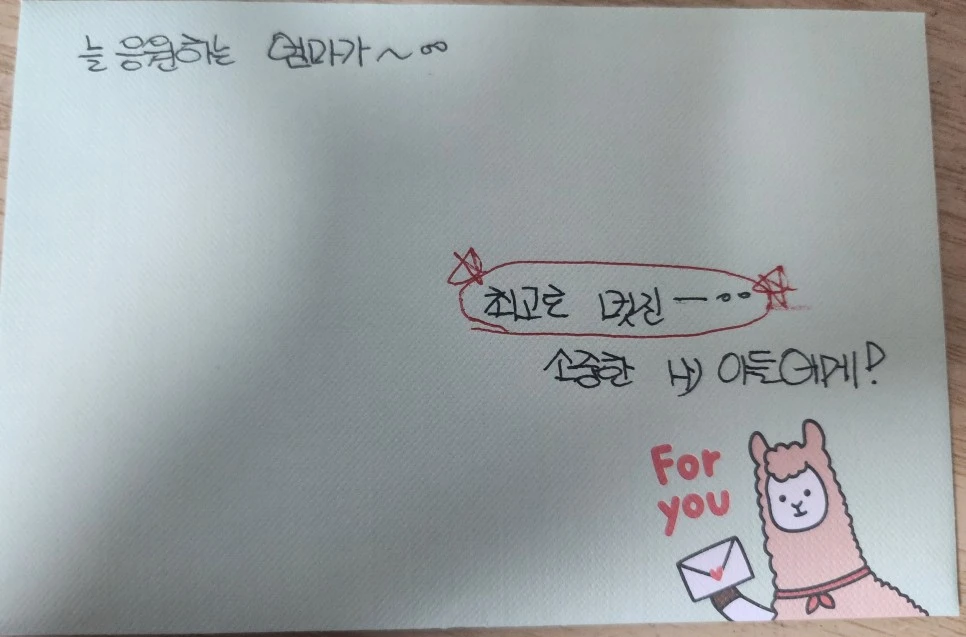 늘 응원하는 엄마가~∞
최고로 멋진 ㅡ ∞
소중한 내 아들에게!
For
you